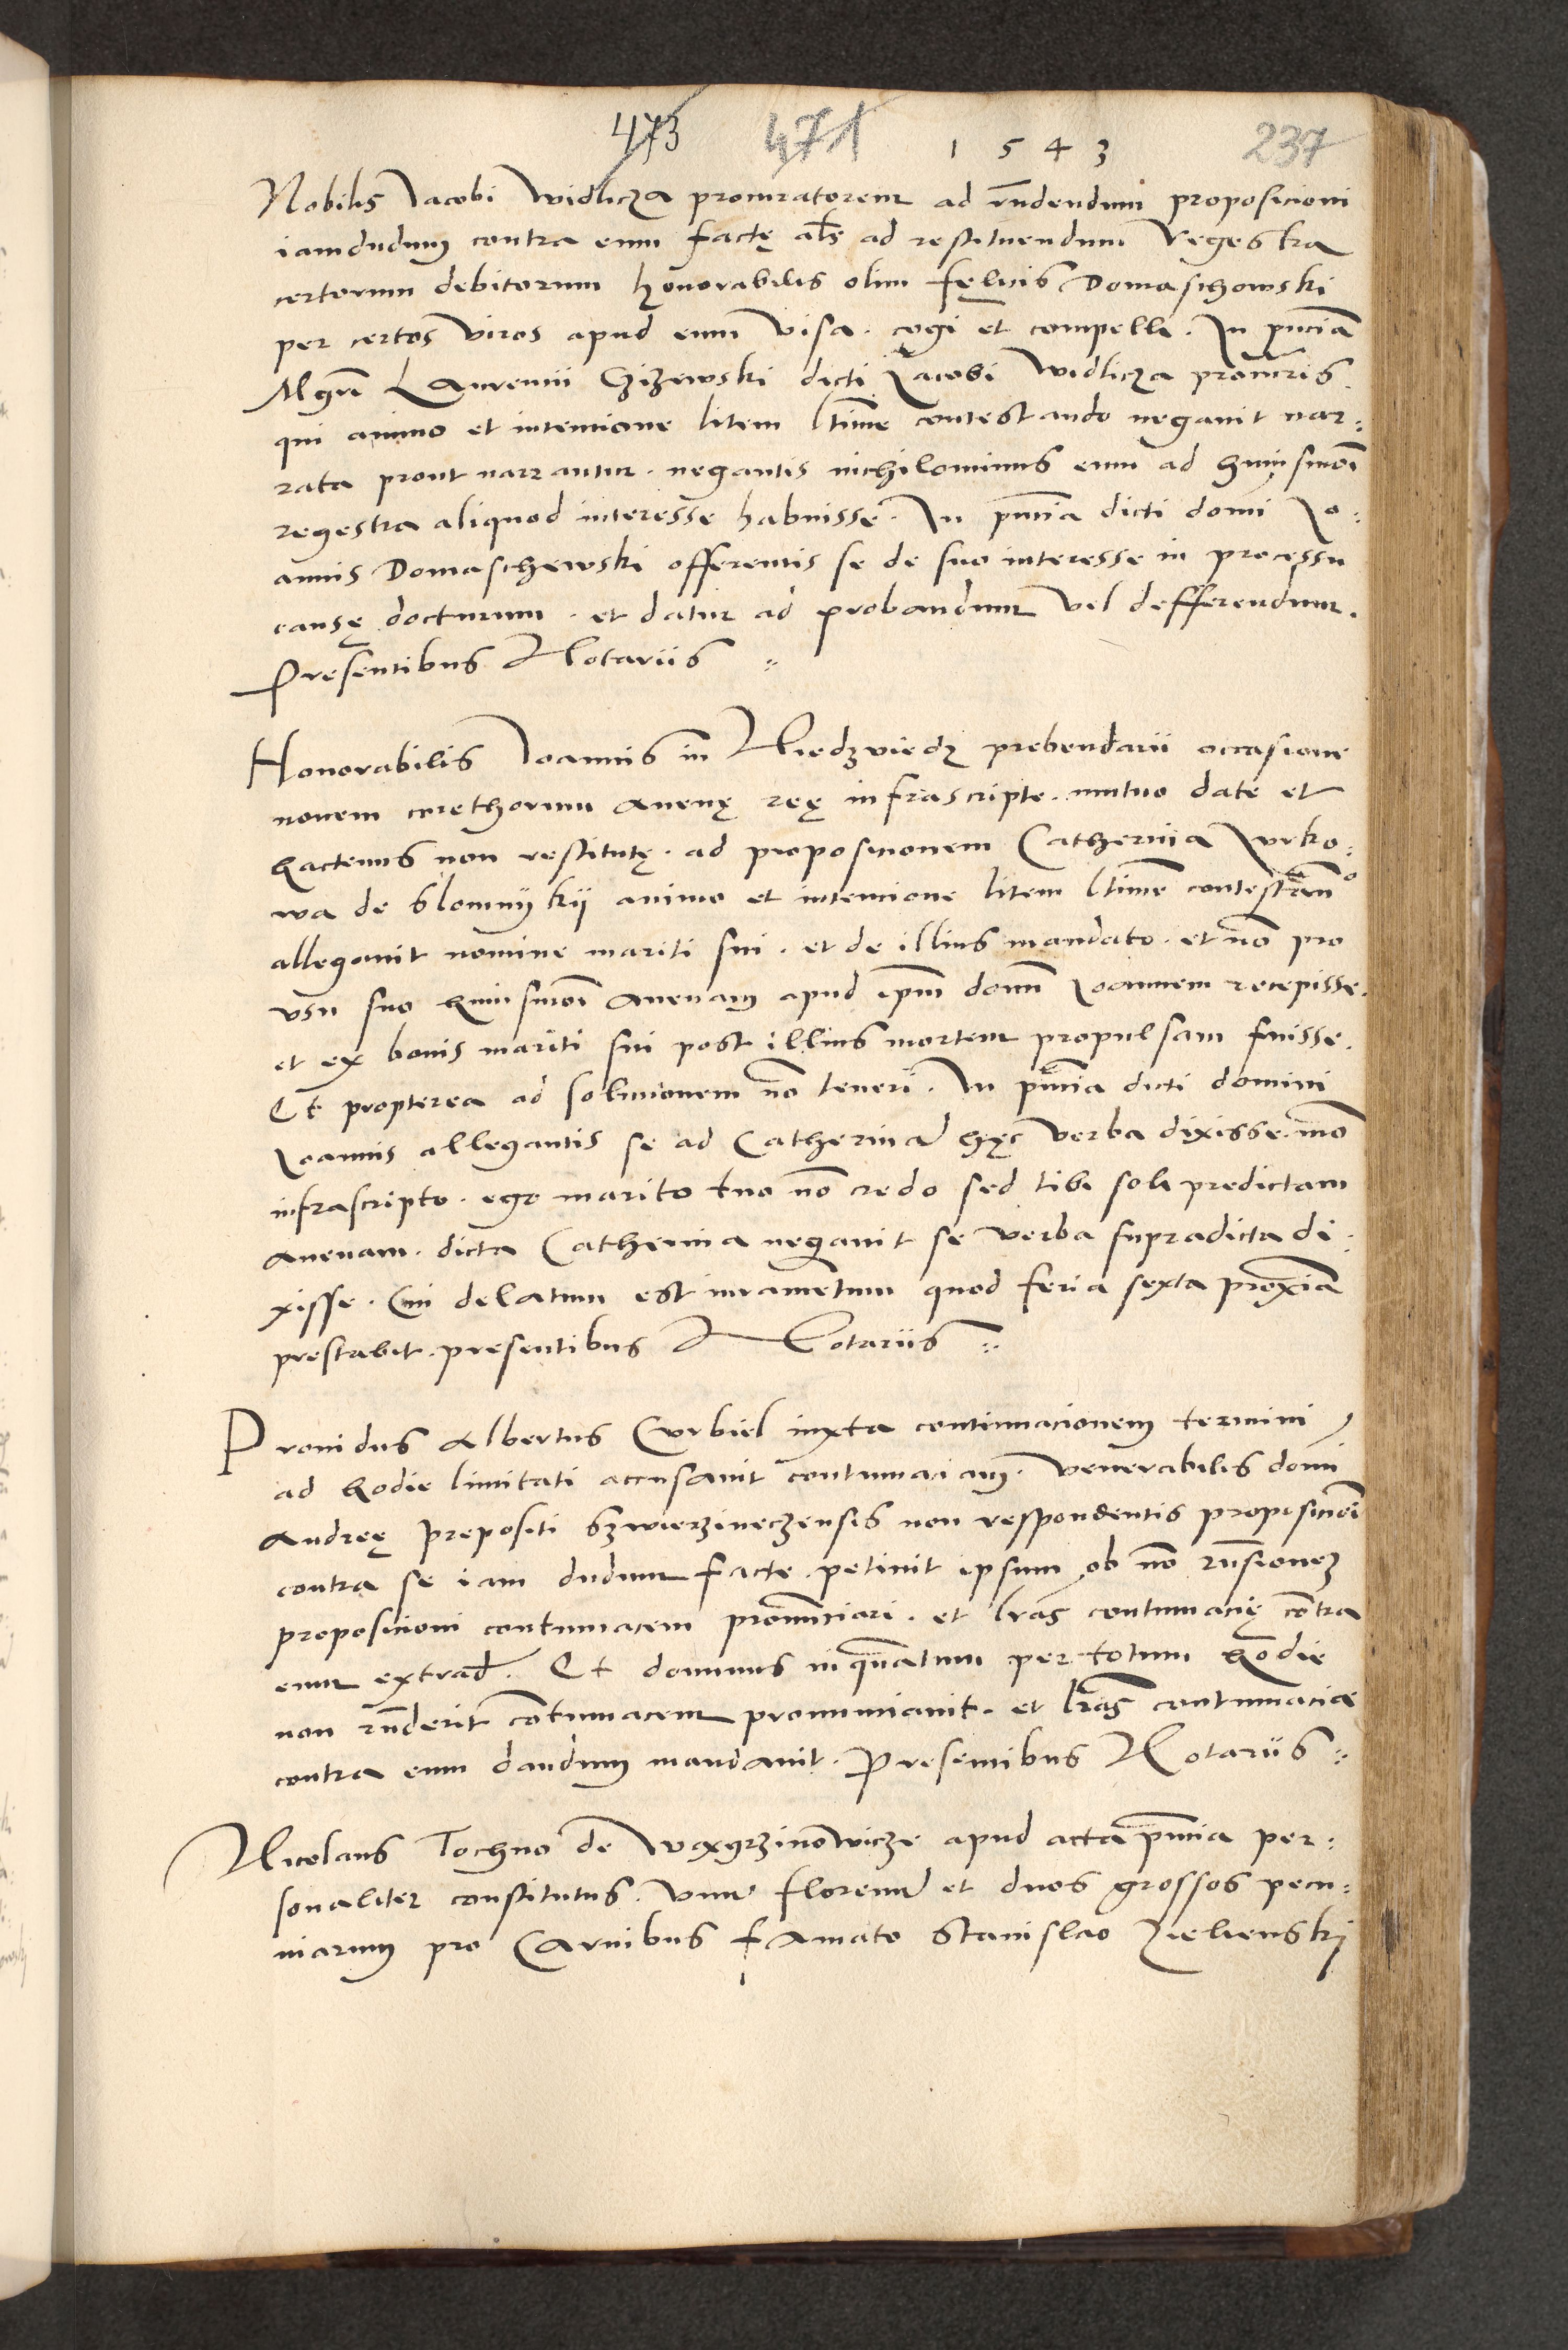 473 471 1543 237
Nobilis Iacobi Widlicza procuratorem ad rñdendum proposicioni
iamdudum contra eum factę als ad restituendum Regestra
certorum debitorum honorabilis olim fęlicis Domaschowski
per certos viros apud eum visa. cogi et compelli. In pñciã
Mgrĩ Laurencii Czizewski dicti Iacobi Widlicza procurĩs.
qui animo et intencione litem ltime contestando negavit nar:
rata prout narrantur. negantis nichilominus eum ad huiusmõi
regestra aliquod interesse habuisse. In pñcia dicti domi Io:
annis Domaschewski offerentis se de suo interesse in processu
causę docturum. et datur ad probandum vel defferendum.
Presentibus Notariis
Honorabilis Ioannis in Niedzviedz prebendarii occasione
novem corethorum avenę reę infrascripte. mutuo date et
hactenus non restitutę. ad proposicionem Catherina Iurko:
wa de Slomnykij animo et intencione litem ltime contestãno
allegavit nomine mariti sui. et de illius mandato. et nõ pro
usu suo huiusmõi avenam apud ipm domi Ioannem recepisse.
et ex bonis mariti sui post illius mortem propulsam fuisse.
Et propterea ad solucionem nõ teneri. In pñcia dicti domini
Ioannis allegantis se ad Catherinã hęc verba dixisse. mõ
infrascripto. ego marito tuo nõ credo sed tibi soli predictam
avenam. dicta Catherina negavit se verba supradicta di:
xisse. Cui delatum est iuramẽtum quod feria sexta proxiã
prestabit. presentibus Notariis
Providus Albertus Curbiel iuxta continuacionem termini
ad hodie limitati accusavit contumaciam. venerabilis domi
Andreę prepositi Szwierzineczensis non respondentis proposicioĩ
contra se iam dudum facte. petivit ipsum ob nõ rñsionem
proposicioni contumacem pronũciari. et lras contumacię cõtra
eum extrad. Et dominus in quãtum per totum hodie
non rñderit cõtumacem pronunciavit. et lras contumaciæ
contra eum dandum mandavit. Presentibus Notariis
Nicolaus Tochno de Waxgrzinowicze apud acta pñcia per:
sonaliter constitutus. unũ florenũ et duos grossos pecu:
niarum pro Carnibus famato Stanislao Zielienskij